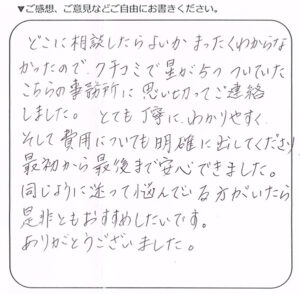 ▼ご感想、ご意見などご自由にお書きください。
どこに相談したらよいか まったくわからな
かったので、クチコミで星が5つ ついていた
こちらの事務所に 思い切ってご連絡
しました。 とても丁寧に、わかりやすく
そして費用についても明確に出してくださり
最初から最後まで安心できました。
同じように迷って悩んでいる方がいたら
是非ともおすすめしたいです。
ありがとうございました。